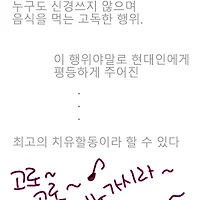 누구도 신경쓰지 않으며
음식을 먹는 고독한 행위.
이 행위야말로 현대인에게
평등하게 주어진
.
.
.
최고의 치유활동이라 할 수 있다
고로~ ♪
고로~
가시라~